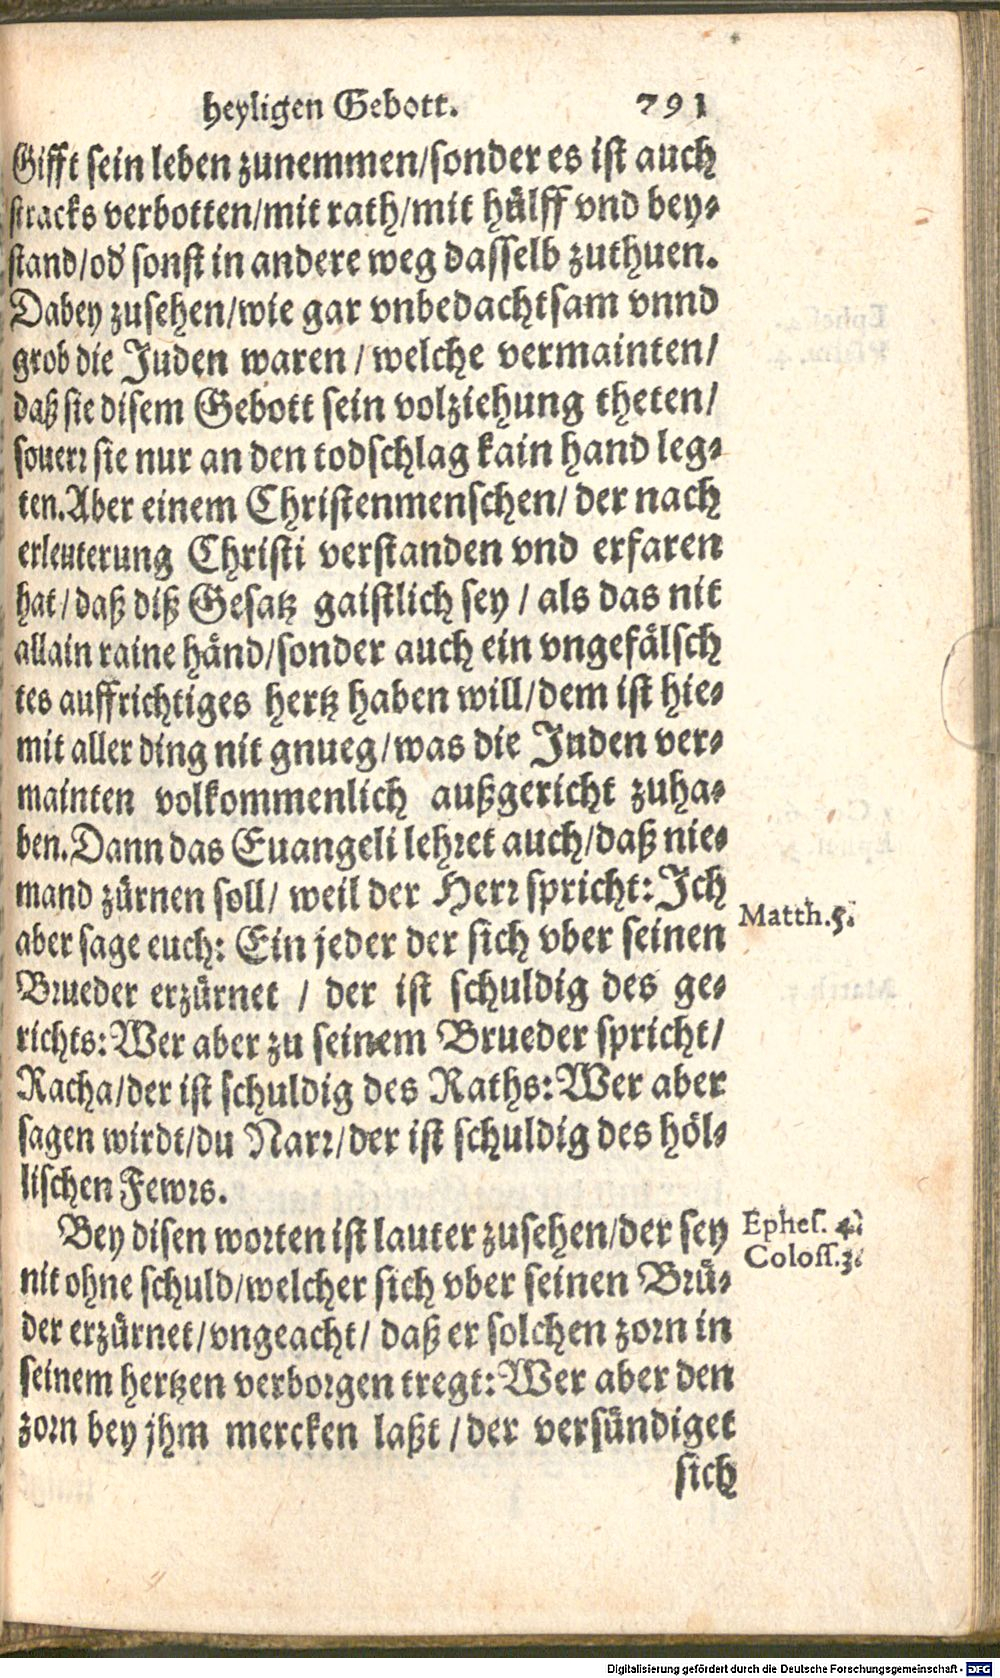 heyligen Gebott. 791
Gifft sein leben zunemmen/sonder es ist auch
stracks verbotten/mit rath/mit hülff vnd bey⸗
stand/od' sonst in andere weg dasselb zuthuen.
Dabey zusehen/wie gar vnbedachtsam vnnd
grob die Juden waren / welche vermainten/
daß sie disem Gebott sein volziehung theten/
souerr sie nur an den todschlag kain hand leg⸗
ten. Aber einem Christenmenschen/ der nach
erleuterung Christi verstanden vnd erfaren
hat / daß diß Gesatz gaistlich sey / als das nit
allain raine händ/sonder auch ein vngefälsch
tes auffrichtiges hertz haben will/dem ist hie⸗
mit aller ding nit gnueg/was die Juden ver⸗
mainten volkommenlich außgericht zuha⸗
ben. Dann das Euangeli lehret auch/daß nie⸗
mand zürnen soll/ weil der Herr spricht: Ich
Matth.5.
aber sage euch: Ein jeder der sich vber seinen
Brueder erzürnet / der ist schuldig des ge⸗
richts: Wer aber zu seinem Brueder spricht/
Racha/der ist schuldig des Raths: Wer aber
sagen wirdt/du Narr/der ist schuldig des höl⸗
lischen Fewrs.
Bey disen worten ist lauter zusehen/der sey
Ephes. 4.
nit ohne schuld/welcher sich vber seinen Brü⸗
Coloss.3.
der erzürnet/vngeacht/ daß er solchen zorn in
seinem hertzen verborgen tregt: Wer aber den
zorn bey jhm mercken laßt / der versündiget
sich
Digitalisierung gefördert durch die Deutsche Forschungsgemeinschaft - DFG